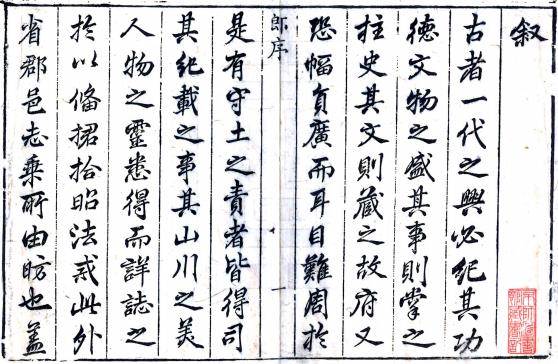 叙
古者一代之興必紀其功
德文物之盛其事則掌之
柱史其文則藏之故府又
恐幅員廣而耳目難周於
郎序
一
是有守土之責者皆得司
其紀載之事其山川之美
人物之靈悉得而詳誌之
於以俻捃拾昭法戒此外
省郡邑志乗所由昉也盖